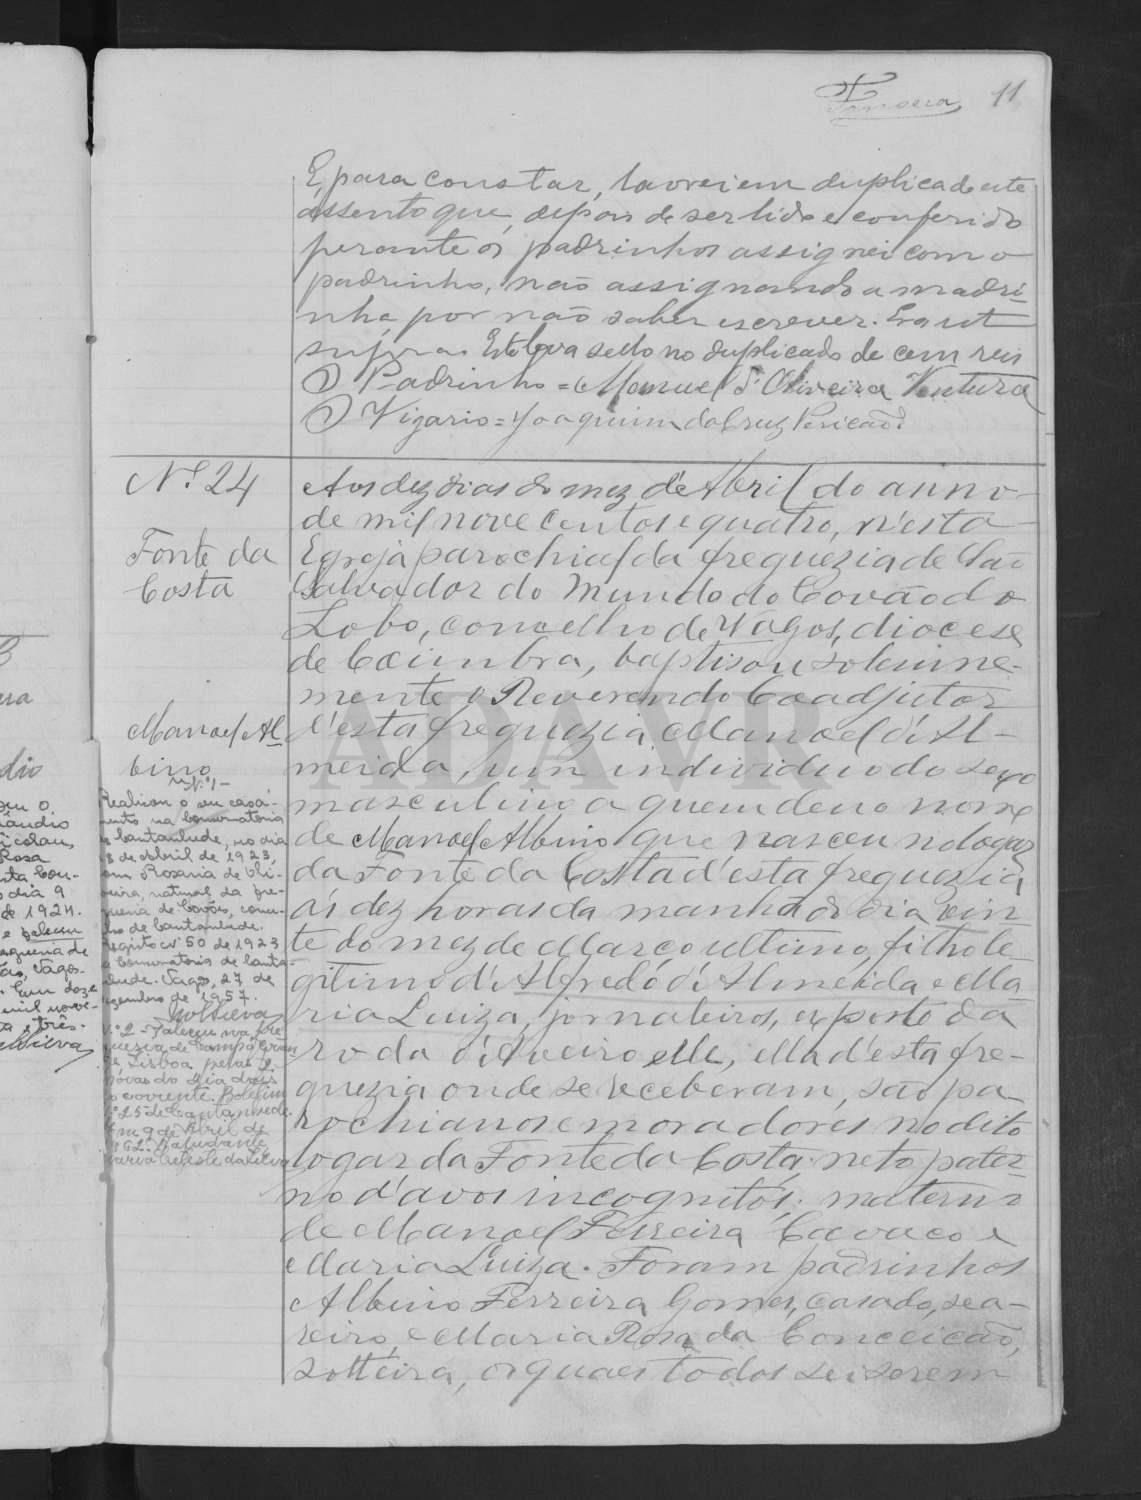 Fonseca 11
E, para constar, lavrei em duplicado este
assento que, depois de ser lido e conferido
perante os padrinhos assignei com o
padrinho, não assignando a madri-
nha, por não saber escrever. Era ut
supra. Estava sello no duplicado de cem reis
O Padrinho = Manuel d'Oliveira Ventura
O Vigario = Joaquim da Cruz Pericão
Nº 24
Fonte da
Costa
Manoel Al-
bino
Aos dez dias do mez de Abril do anno
de mil nove centos e quatro, n'esta
Egreja parochial da freguezia de São
Salvador do Mundo do Covão do
Lobo, concelho de Vagos, diocese
de Coimbra, baptisou solemne-
mente o Reverendo Coadjutor
d'esta freguezia Manoel d'Al-
meida, um individuo do sexo
masculino a quem deu o nome
de Manoel Albino que nasceu no logar
da Fonte da Costa d'esta freguezia
ás dez horas da manhã do dia vin-
te do mez de Março ultimo, filho le-
gitimo d'Alfredo d'Almeida e Ma-
ria Luiza, jornaleiros, exposto da
roda d'Aveiro elle, ella d'esta fre-
guezia onde se receberam, são pa-
rochianos e moradores no dito
logar da Fonte da Costa; neto pater-
no d'avos incognitos; materno
de Manoel Ferreira Cavaco e
Maria Luiza. Foram padrinhos
Albino Ferreira Gomes, casado, sea-
reiro, e Maria Rosa da Conceicão,
solteira, os quaes todos sei serem
Nº 1 -
Realizou o seu casa-
mento na Conservatoria
de Cantanhede, no dia
de Abril de 1923,
com Rosaria de Oli-
veira, natural da fre-
guesia de Covões, conce-
lho de Cantanhede.
Registo nº 50 de 1923
da Conservatoria de Canta-
nhede. Vagos, 27 de
Dezembro de 1957.
Nº 2 - Faleceu na fre-
guesia de Campo Grande
de Lisboa pelas
novas do dia dois
do corrente. Boletim
nº 25 de Cantanhede.
Em 9 de Abril de
962. A ajudante
Maria Celeste da Silva
ADAVR